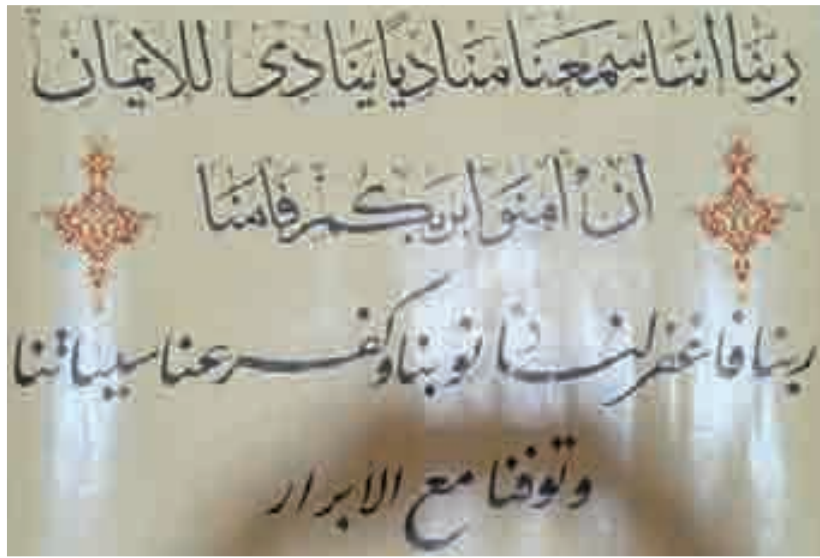 ربنا اننا سمعنا منادیا ینادی للایمان
ان امنوا بربکم فامنا
ربنا فاغفر لنا ذنوبنا وکفر عنا سیئاتنا
وتوفنا مع الابرار